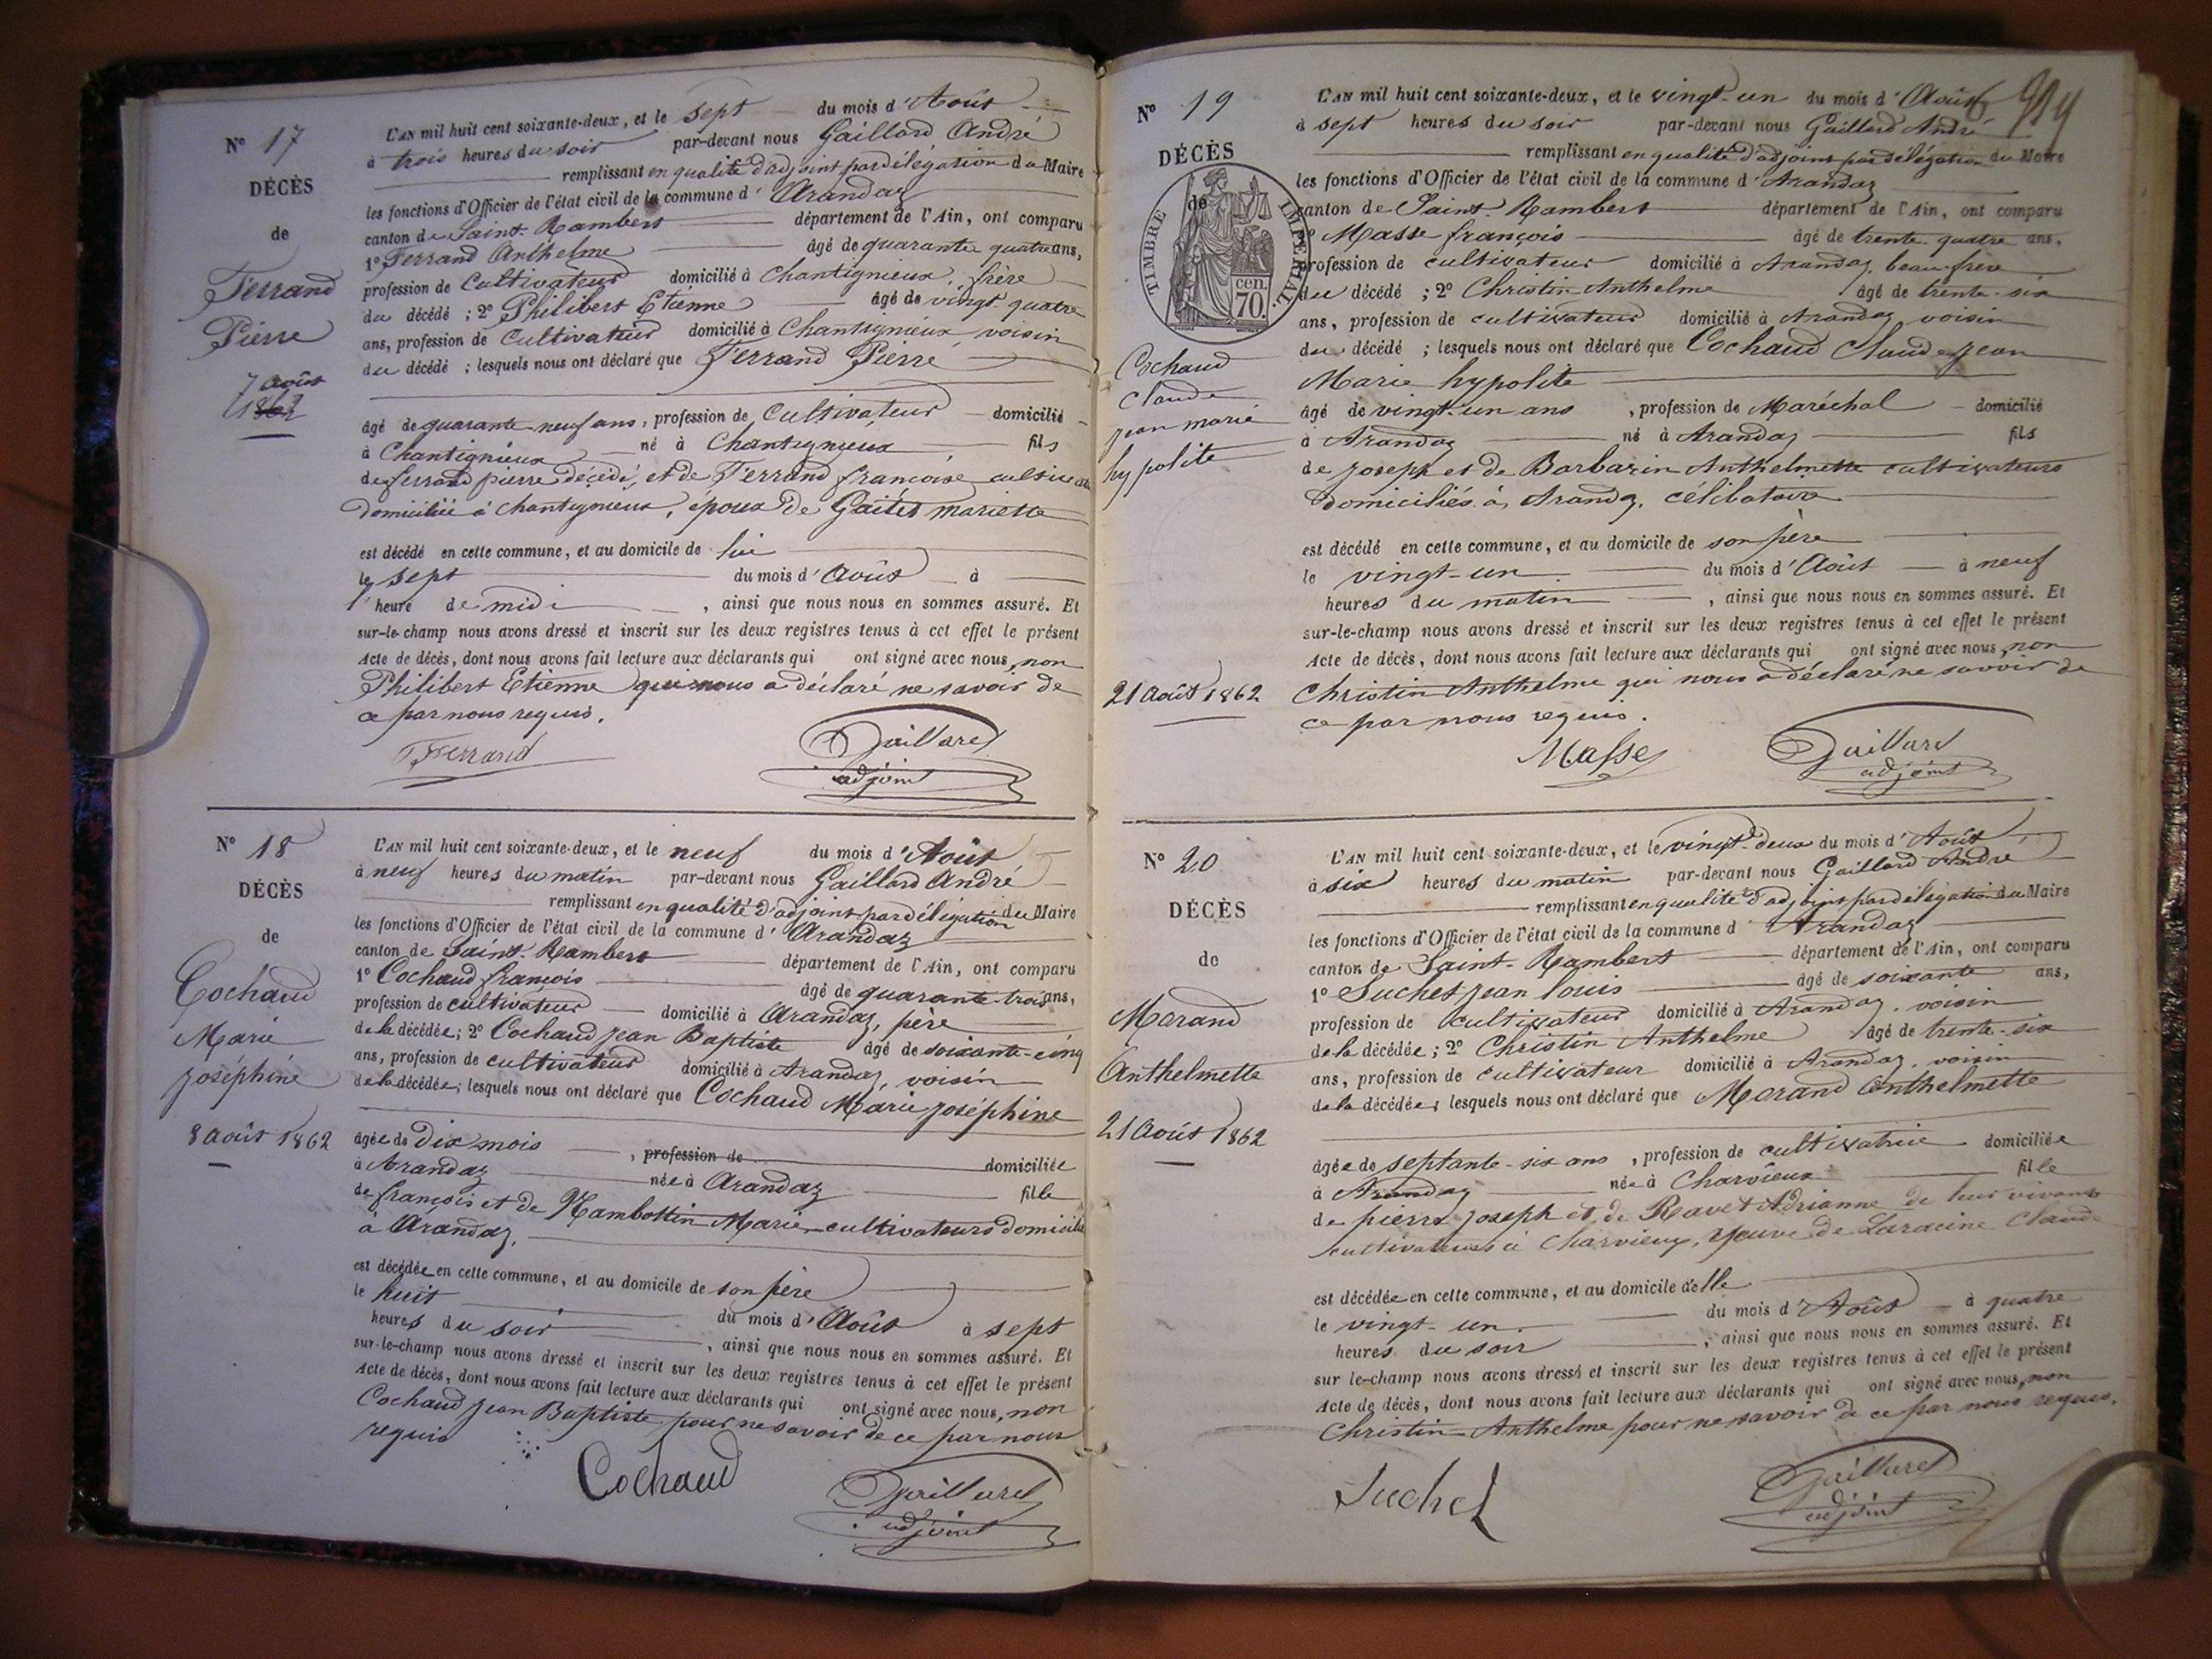 Nº 17
DÉCÈS
de
Ferrand
Pierre
7 août
1862
L'AN mil huit cent soixante-deux, et le sept du mois d'Août
à trois heures du soir par-devant nous Gaillard André
remplissant en qualité d'adjoint par délégation du Maire
les fonctions d'Officier de l'état civil de la commune d'Arandaz
canton de Saint-Rambert département de l'Ain, ont comparu
1º Ferrand Anthelme âgé de quarante quatre ans,
profession de Cultivateur domicilié à Chantignieux, frère
du décédé ; 2º Philibert Etienne âgé de vingt quatre
ans, profession de Cultivateur domicilié à Chantignieux voisin
du décédé ; lesquels nous ont déclaré que Ferrand Pierre
âgé de quarante-neuf ans, profession de Cultivateur domicilié
à Chantignieux né à Chantignieux fils
de ferrand pierre décédé, et de Ferrand françoise
domiciliée à Chantignieux, époux de Gaitet mariette
est décédé en cette commune, et au domicile de lui
le sept du mois d'Août à
l'heure de midi, ainsi que nous nous en sommes assuré. Et
sur-le-champ nous avons dressé et inscrit sur les deux registres tenus à cet effet le présent
Acte de décès, dont nous avons fait lecture aux déclarants qui ont signé avec nous, non
Philibert Etienne qui nous a déclaré ne savoir de
ce par nous requis.
Ferrand Gaillard
adjoint
Nº 18
DÉCÈS
de
Cochaud
Marie
joséphine
8 août 1862
L'AN mil huit cent soixante-deux, et le neuf du mois d'Août
à neuf heures du matin par-devant nous Gaillard André
remplissant en qualité d'adjoint par délégation du Maire
les fonctions d'Officier de l'état civil de la commune d'Arandaz
canton de Saint-Rambert département de l'Ain, ont comparu
1º Cochaud françois âgé de quarante-trois ans,
profession de cultivateur domicilié à Arandaz, père
de la décédée ; 2º Cochaud jean Baptiste âgé de soixante-cinq
ans, profession de cultivateur domicilié à Arandaz, voisin
de la décédée ; lesquels nous ont déclaré que Cochaud Marie joséphine
âgée de Dix mois, profession de domiciliée
à Arandaz née à Arandaz fille
de françois et de Mambottin Marie cultivateurs
à Arandaz.
est décédée en cette commune, et au domicile de son père
le huit du mois d'Août à sept
heures du soir, ainsi que nous nous en sommes assuré. Et
sur-le-champ nous avons dressé et inscrit sur les deux registres tenus à cet effet le présent
Acte de décès, dont nous avons fait lecture aux déclarants qui ont signé avec nous, non
Cochaud jean Baptiste pour ne savoir de ce par nous
requis
Cochaud Gaillard
adjoint
Nº 19
DÉCÈS
de
TIMBRE IMPÉRIAL
70 cen.
Cochaud
claude
jean marie
hypolite
21 Août 1862
L'AN mil huit cent soixante-deux, et le vingt-un du mois d'Août
à sept heures du soir par-devant nous Gaillard André
remplissant en qualité d'adjoint par délégation du Maire
les fonctions d'Officier de l'état civil de la commune d'Arandaz
canton de Saint-Rambert département de l'Ain, ont comparu
1º Masse françois âgé de trente-quatre ans,
profession de cultivateur domicilié à Arandaz, beau-frère
du décédé ; 2º Christin Anthelme âgé de trente-six
ans, profession de cultivateur domicilié à Arandaz voisin
du décédé ; lesquels nous ont déclaré que Cochaud Claude jean
Marie hypolite
âgé de vingt-un ans, profession de Maréchal domicilié
à Arandaz né à Arandaz fils
de joseph et de Barbarin Anthelmette cultivateurs
domiciliés à Arandaz, célibataire
est décédé en cette commune, et au domicile de son père
le vingt-un du mois d'Août à neuf
heures du matin, ainsi que nous nous en sommes assuré. Et
sur-le-champ nous avons dressé et inscrit sur les deux registres tenus à cet effet le présent
Acte de décès, dont nous avons fait lecture aux déclarants qui ont signé avec nous, non
Christin Anthelme qui nous a déclaré ne savoir de
ce par nous requis.
Masse Gaillard
adjoint
Nº 20
DÉCÈS
de
Morand
Anthelmette
21 Août 1862
L'AN mil huit cent soixante-deux, et le vingt-deux du mois d'Août
à six heures du matin par-devant nous Gaillard André
remplissant en qualité d'adjoint par délégation du Maire
les fonctions d'Officier de l'état civil de la commune d'Arandaz
canton de Saint-Rambert département de l'Ain, ont comparu
1º Suchet jean louis âgé de soixante ans,
profession de cultivateur domicilié à Arandaz, voisin
de la décédée ; 2º Christin Anthelme âgé de trente-six
ans, profession de cultivateur domicilié à Arandaz, voisin
de la décédée ; lesquels nous ont déclaré que Morand Anthelmette
âgée de septante-six ans, profession de cultivatrice domiciliée
à Arandaz née à Charvieux fille
de pierre joseph et de Ravet Adrianne de leur vivant
cultivateurs à Charvieux, veuve de Laracine Claude
est décédée en cette commune, et au domicile d'elle
le vingt-un du mois d'Août à quatre
heures du soir, ainsi que nous nous en sommes assuré. Et
sur le-champ nous avons dressé et inscrit sur les deux registres tenus à cet effet le présent
Acte de décès, dont nous avons fait lecture aux déclarants qui ont signé avec nous, non
Christin Anthelme pour ne savoir de ce par nous requis.
Suchet Gaillard
adjoint